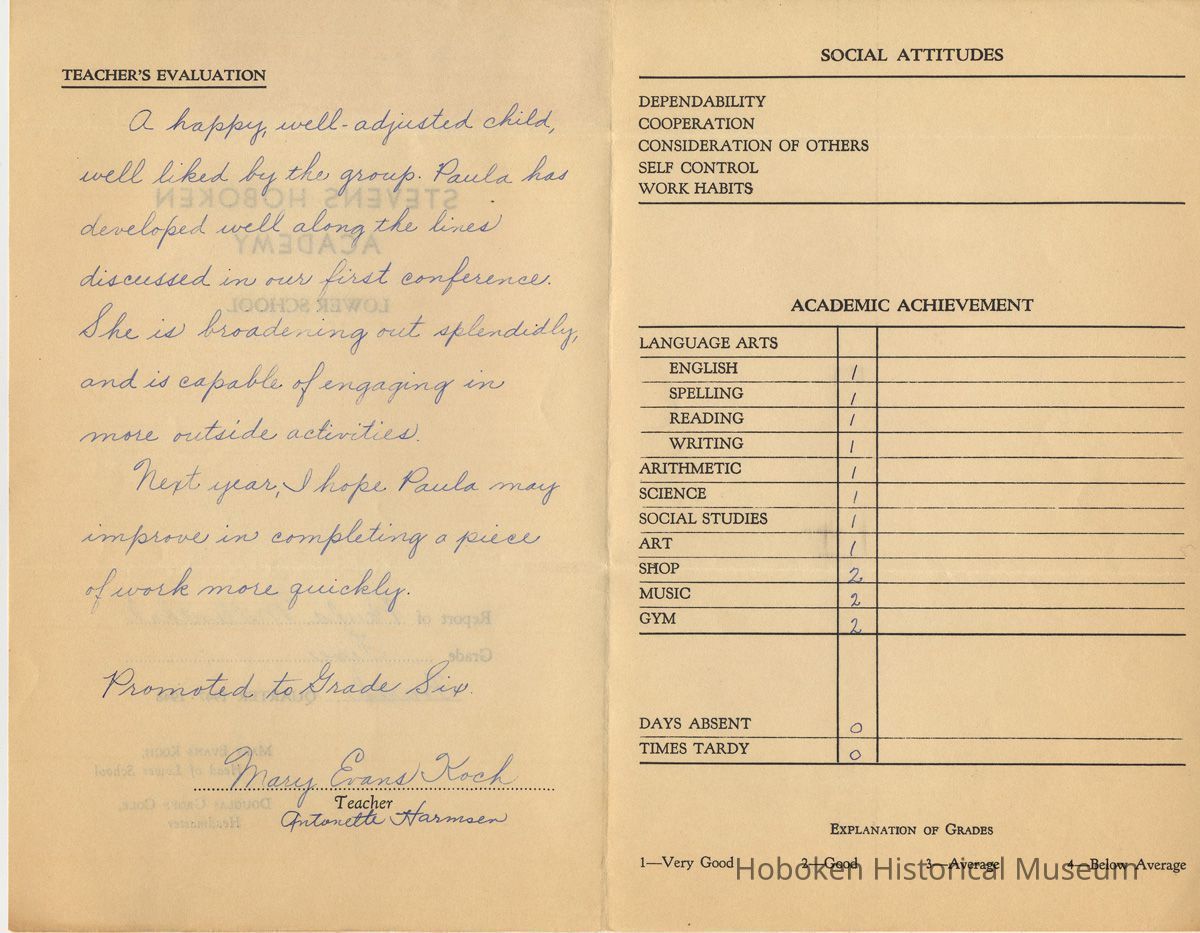 TEACHER'S EVALUATION
A happy, well-adjusted child,
well liked by the group. Paula has
developed well along the lines
discussed in our first conference.
She is broadening out splendidly,
and is capable of engaging in
more outside activities.
Next year, I hope Paula may
improve in completing a piece
of work more quickly.
Promoted to Grade Six.
Mary Evans Koch
Teacher
Antonette Harmsen
SOCIAL ATTITUDES
DEPENDABILITY
COOPERATION
CONSIDERATION OF OTHERS
SELF CONTROL
WORK HABITS
ACADEMIC ACHIEVEMENT
LANGUAGE ARTS
ENGLISH 1
SPELLING 1
READING 1
WRITING 1
ARITHMETIC 1
SCIENCE 1
SOCIAL STUDIES 1
ART 1
SHOP 2
MUSIC 2
GYM 2
DAYS ABSENT 0
TIMES TARDY 0
EXPLANATION OF GRADES
1—Very Good 2—Good 3—Average 4—Below Average
Hoboken Historical Museum
STEVENS HOBOKEN
ACADEMY
LOWER SCHOOL
Report of
Grade
QUARTER
MARY EVANS KOCH,
Head of Lower School
Headmaster